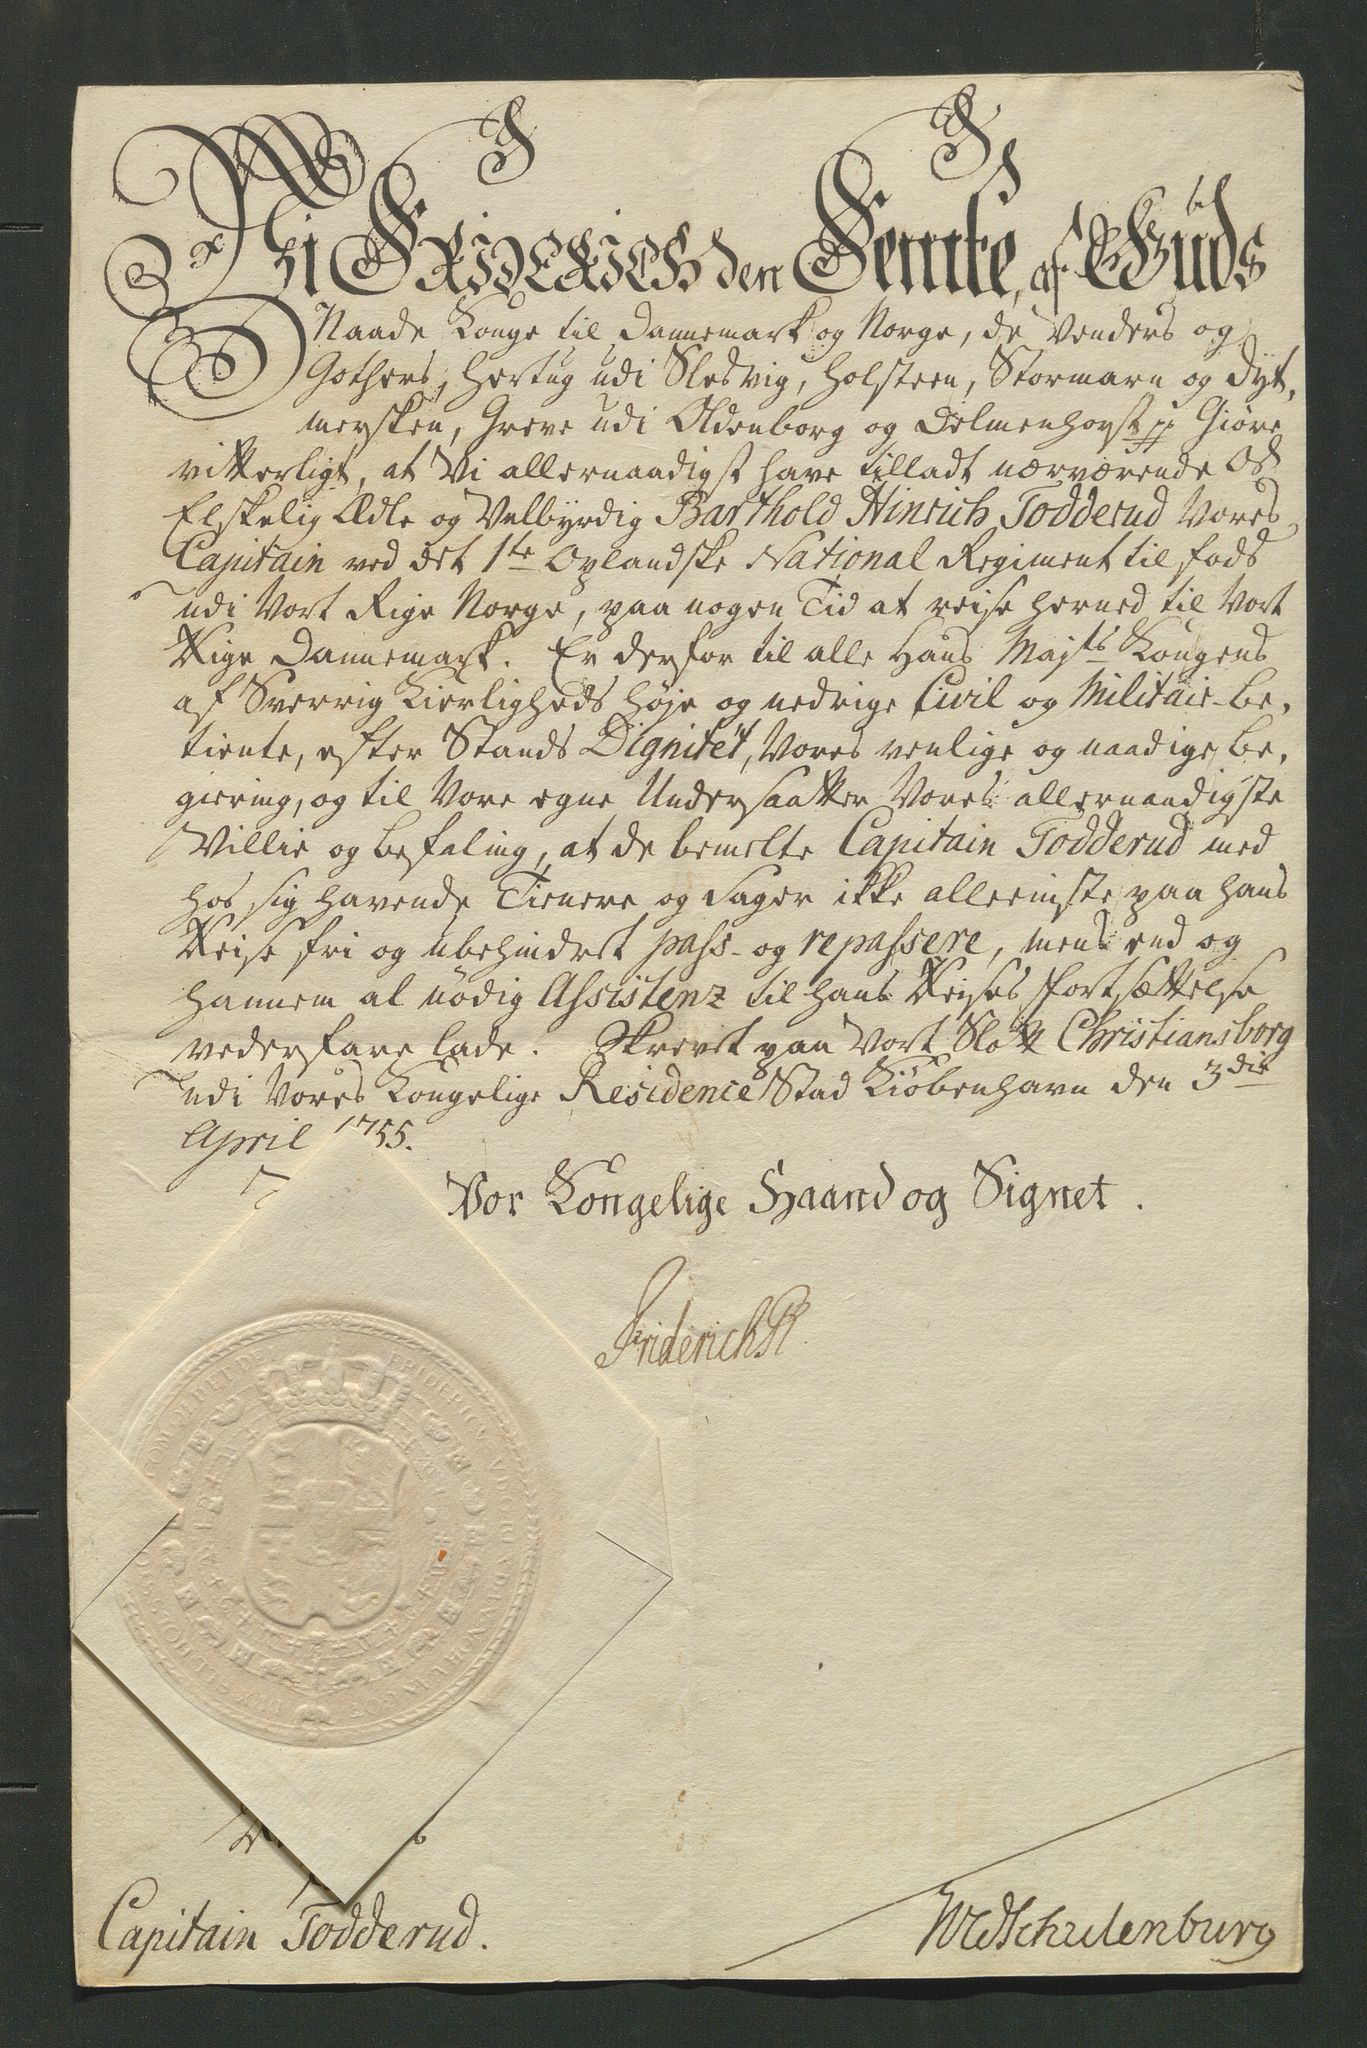 Vi FRIDERICH den Femte, af Guds
Naade Konge til Dannemark og Norge, de Venders og
Gothers, Hertug udi Slesvig, Holsteen, Stormarn og Dyt,
mersken, Greve udi Oldenborg og Delmenhorst pp Giøre
vitterligt, at Vi allernaadigst have tilladt nærværende Os
Elskelig Ædle og Velbyrdig Barthold Hinrich Todderud Vores
Capitain ved det 1te Oplandske National Regiment til fods
udi Vort Rige Norge, paa nogen Tid at reise herned til Vort
Rige Dannemark. Er derfor til alle Hans Majts Kongens
af Sverrig Kierligheds høje og nedrige Civil og Militair-Be,
tiente, efter Stands Dignitet, Vores venlige og naadige Be,
giering, og til Vore egne Undersaatter Vores allernaadigste
Villie og Befaling, at de bemelte Capitain Todderud med
hos sig havende Tienere og Sager ikke alleeniste paa hans
Reise fri og ubehindret pass- og repassere, mens end og
hannem al nødig Assistenz til hans Reises fortsættelse
vederfare lade. Skrevet paa Vort Slott Christiansborg
udi Vores Kongelige Residence Stad Kiøbenhavn den 3die
April 1755.
Vor Kongelige Haand og Signet.
Friderich R
Capitain Todderud.
WCvSchulenburg